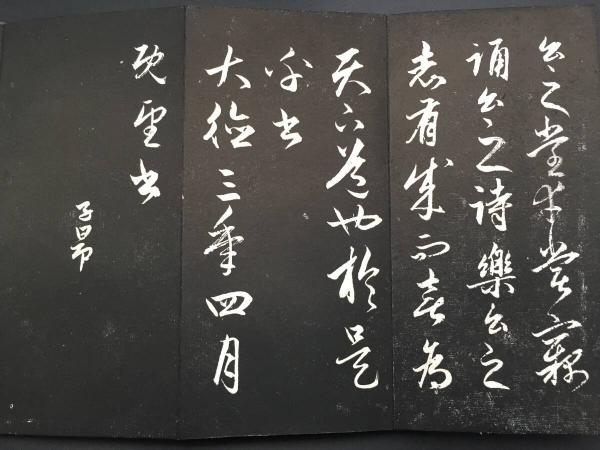 公之堂幸嘗竊
誦公之詩樂公之
志有成而喜為
天下道也於是
乎書
大德三年四月
既望書
子昂